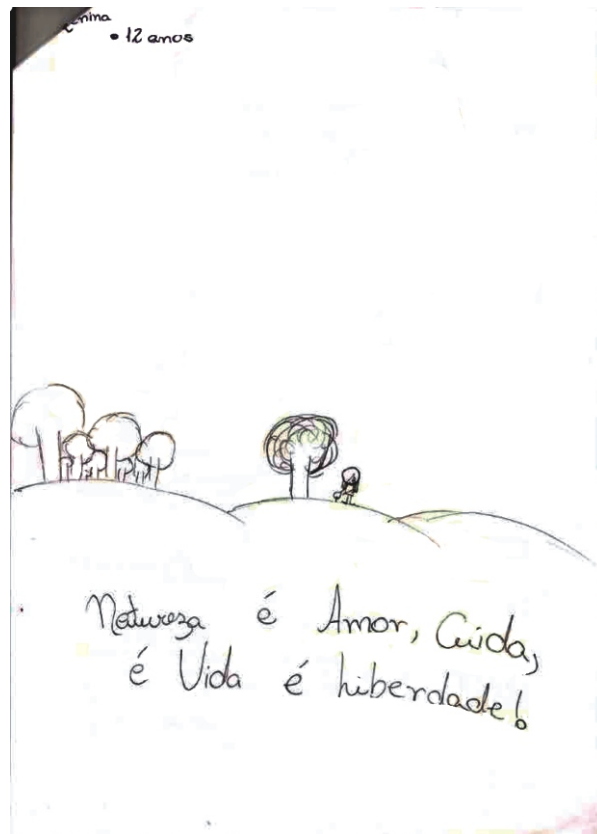 • 12 anos
Natureza é Amor, Cuida,
é Vida é Liberdade!